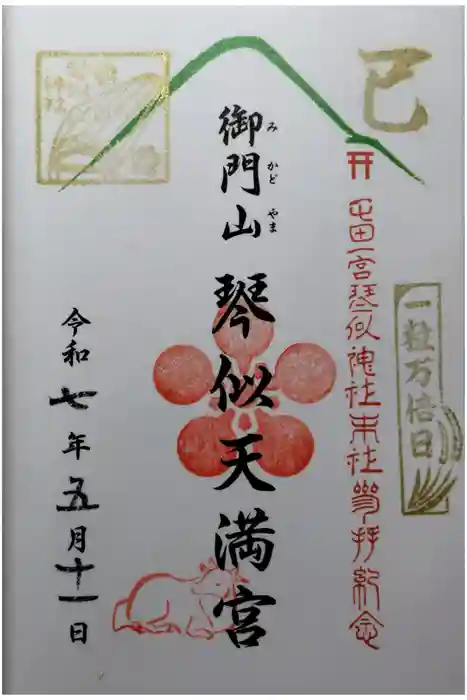 巳
一粒万倍日
屯田一宮琴似神社末社参拝紀念
御門山 琴似天満宮
みかどやま
令和七年五月十一日